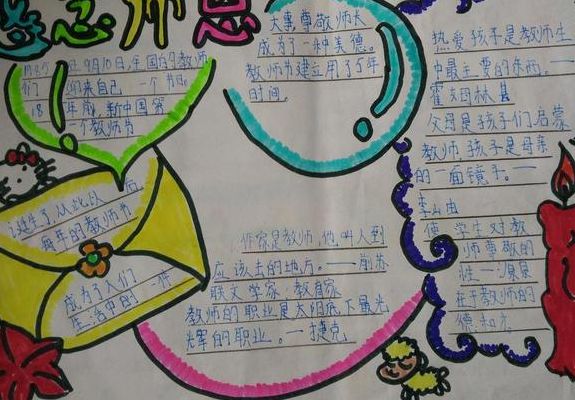 感恩师恩
1985 9月10日,全国的教师
们 来自己 一个节日。
1985年成,新中国第
一个教师节
诞生了,从此以后
每年的教师节
成为了人们
生活中的一件
大事尊敬师长
成为了一种美德。
教师节建立用了5年
时间。
作家是教师,他叫人到
应该去的地方。——前苏
联文学家·教育家
教师的职业是太阳底下最光
辉的职业。——捷克
热爱孩子是教师生
中最主要的东西。——
霍姆林县
父母是孩子们启蒙
教师孩子是母亲
的一面镜子。——
李山由
使学生对教
师尊敬的
惟一源泉
在于教师的
德和才